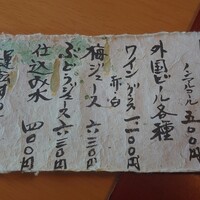 ノンアルコール 五〇〇円
外国ビール各種
ワイン グラス 赤・白 一、一〇〇円
梅ジュース 六三〇円
ぶどうジュース 六三〇円
仕込み水 四〇〇円